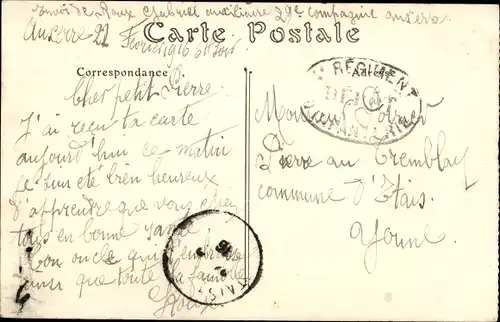 Envoi de Roux Gabriel auxiliaire 29e compagnie Auxerre
Auxerre 22 Février 1916
Carte Postale
Correspondance
Adresse
RÉGIMENT
DÉPOT
D'INFANTERIE
Cher petit Pierre
J'ai reçu ta carte
aujourd'hui ce matin
je suis été bien heureux
d'apprendre que vous étiez
tous en bonne santé
Ton oncle qui t'embrasse
ainsi que toute la famille
Roux
Monsieur
Pierre au Tremblay
commune D'Etais
Yonne
ETAIS